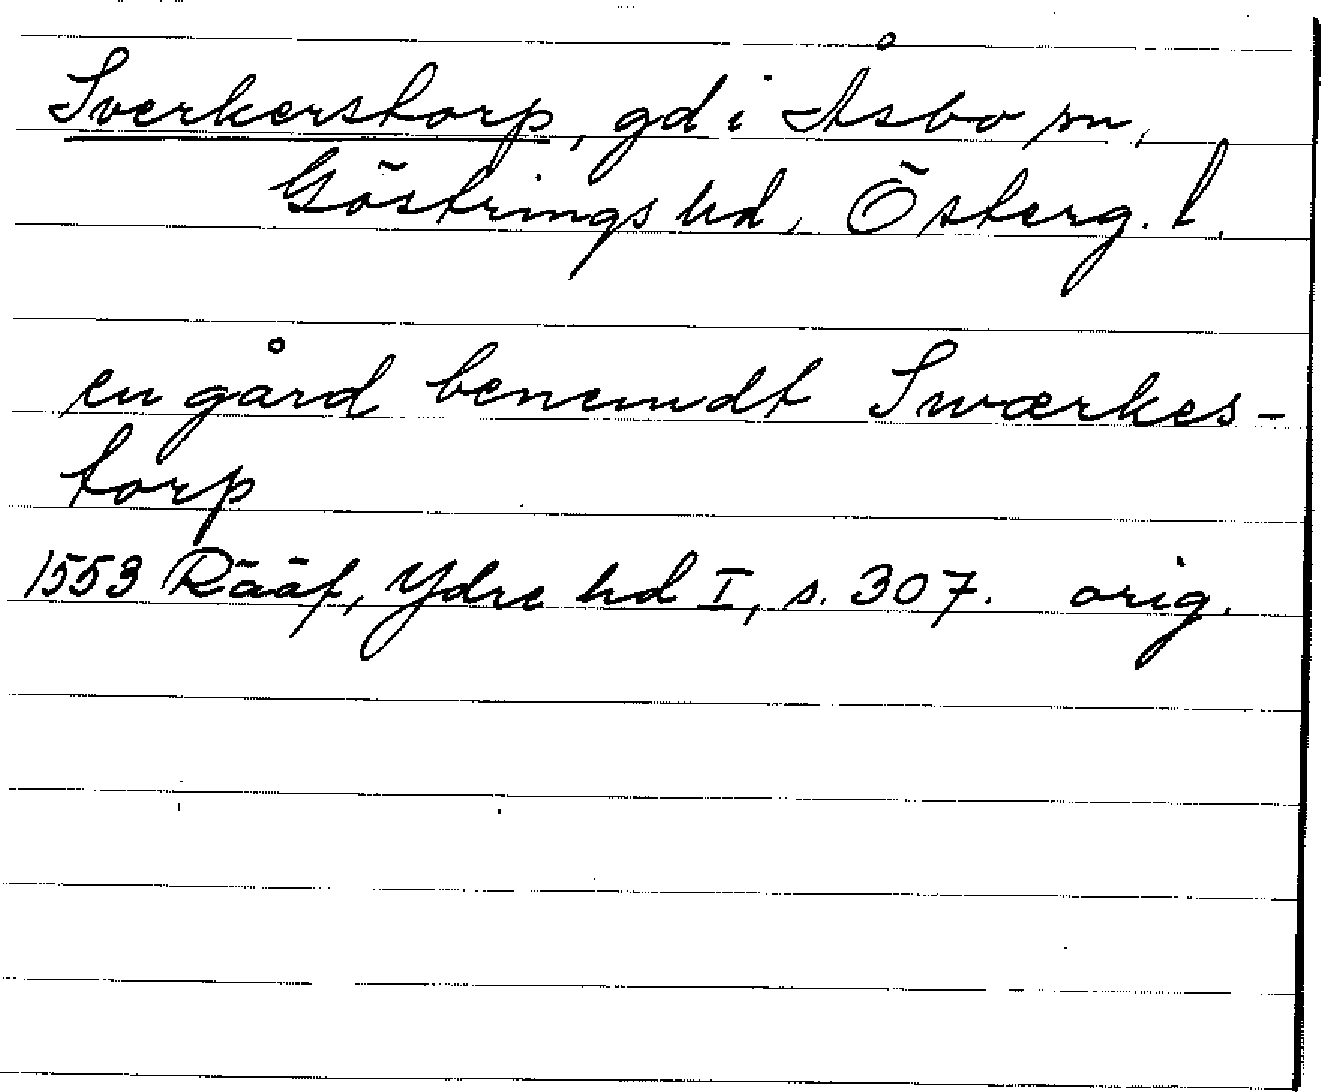 Sverkerstorp, gd i Åsbo sn,
Göstrings hd, Österg. l.
en gård benemdt Swærkes-
torp
1553 Rääf, Ydre hd I, s. 307. orig.